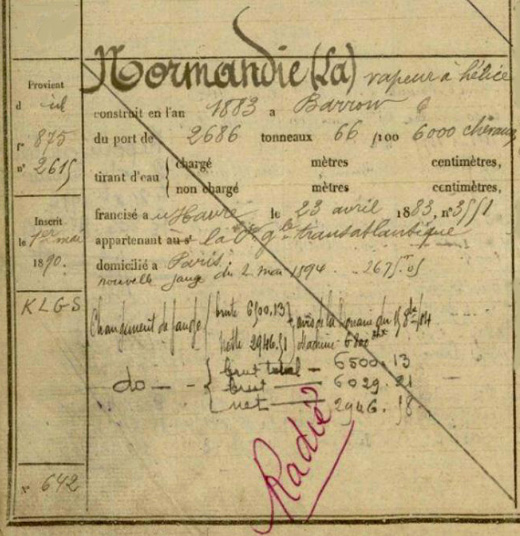 Normandie (La) vapeur à hélice
Provient
d
construit en l'an 1883 a Barrow
f° 875
du port de 2686 tonneaux 66 /100 6000 chevaux
n° 2615
tirant d'eau { chargé mètres centimètres,
non chargé mètres centimètres,
Inscrit
francisé au Havre le 23 avril 1883, n° 3551
le 1er mai
appartenant à la Cie Gle transatlantique
1890.
domicilié a Paris.
nouvelle jauge du 2 mai 1894 2675.05
KLGS
Changement de jauge { brute 6500,13
nette 2946.51 Machine 6800
do — { brut total — 6500.13
brut — 6029.21
net — 2946.58
Radié
N° 642